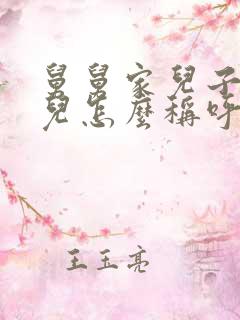 舅舅家兒子
兒怎麼稱呼
王玉亮